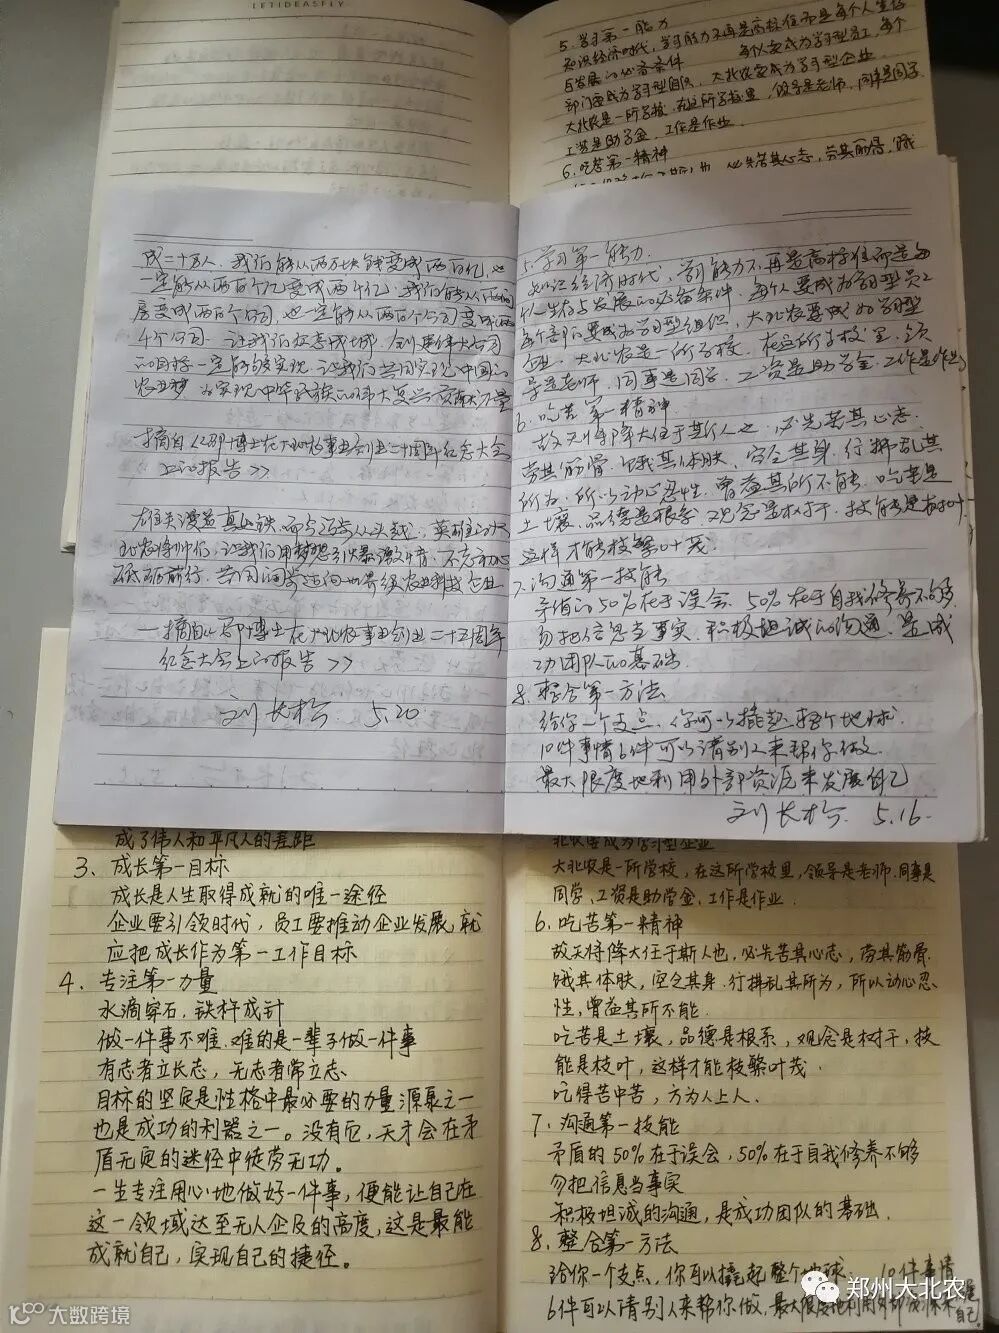 LETIDEASFLY
5. 学习第一能力
知识经济时代，学习能力不再是高标值而是每个人生存
与发展的必备条件 每个人要成为学习型员工，每个
部门要成为学习型组织，大北农要成为学习型企业
大北农是一所学校，在这所学校里，领导是老师，同事是同学
工资是助学金，工作是作业
6、吃苦第一精神
必先苦其心志，劳其筋骨，饿
成二十万人，我们能从两万块钱变成两百亿，也
一定能从两百个亿变成两千亿，我们能从
变成两百个公司，也一定能从两百个公司变成两
千个公司 让我们众志成城，创建伟大公司
的目标一定能够实现 让我们共同实现中国的
农业梦 为实现中华民族的伟大复兴贡献力量
摘自《邵博士在大北农事业创业二十周年纪念大会
上的报告》
雄关漫道真如铁，而今迈步从头越，英雄的大
北农将帅们，让我们用梦想引爆激情，不忘初心
砥砺前行，共同阔步迈向世界级农业科技企业
—摘自《邵博士在大北农事业创业二十五周年
纪念大会上的报告》
刘长松 5.20
5. 学习第一能力
知识经济时代，学习能力不再是高标值而是每
个人生存与发展的必备条件，每个人要成为学习型员工
每个部门要成为学习型组织，大北农要成为学习型
企业，大北农是一所学校，在这所学校里，领
导是老师，同事是同学，工资是助学金，工作是作业
6、吃苦第一精神
故天将降大任于斯人也，必先苦其心志，
劳其筋骨，饿其体肤，空乏其身，行拂乱其
所为，所以动心忍性，曾益其所不能，吃苦是
土壤，品德是根系，观念是树干，技能是枝叶，
这样才能枝繁叶茂
7、沟通第一技能
矛盾的50%在于误会，50%在于自我修养不够
勿把信息当事实，积极坦诚的沟通，是成
功团队的基础
8. 整合第一方法
给你一个支点，你可以撬起整个地球，
10件事情6件可以请别人来帮你做，
最大限度地利用外部资源来发展自己
刘长松 5.16
成了伟人和平凡人的差距
3、成长第一目标
成长是人生取得成就的唯一途径
企业要引领时代，员工要推动企业发展，就
应把成长作为第一工作目标
4、专注第一力量
水滴穿石，铁杵成针
做一件事不难，难的是一辈子做一件事
有志者立长志，无志者常立志
目标的坚定是性格中最必要的力量源泉之一
也是成功的利器之一。没有它，天才会在矛
盾无定的迷径中徒劳无功。
一生专注用心地做好一件事，便能让自己在
这一领域达至无人企及的高度，这是最能
成就自己，实现自己的捷径。
北农要成为学习型企业
大北农是一所学校，在这所学校里，领导是老师，同事是
同学，工资是助学金，工作是作业．
6、吃苦第一精神
故天将降大任于斯人也，必先苦其心志，劳其筋骨
饿其体肤，空乏其身，行拂乱其所为，所以动心忍
性，曾益其所不能．
吃苦是土壤，品德是根系，观念是树干，技
能是枝叶，这样才能枝繁叶茂．
吃得苦中苦，方为人上人．
7、沟通第一技能
矛盾的50%在于误会，50%在于自我修养不够
勿把信息当事实
积极坦诚的沟通，是成功团队的基础．
8、整合第一方法
给你一个支点，你可以撬起整个地球， 10件事情
6件可以请别人来帮你做，最大限度地利用外部资源来
自己
郑州大北农
大数跨境